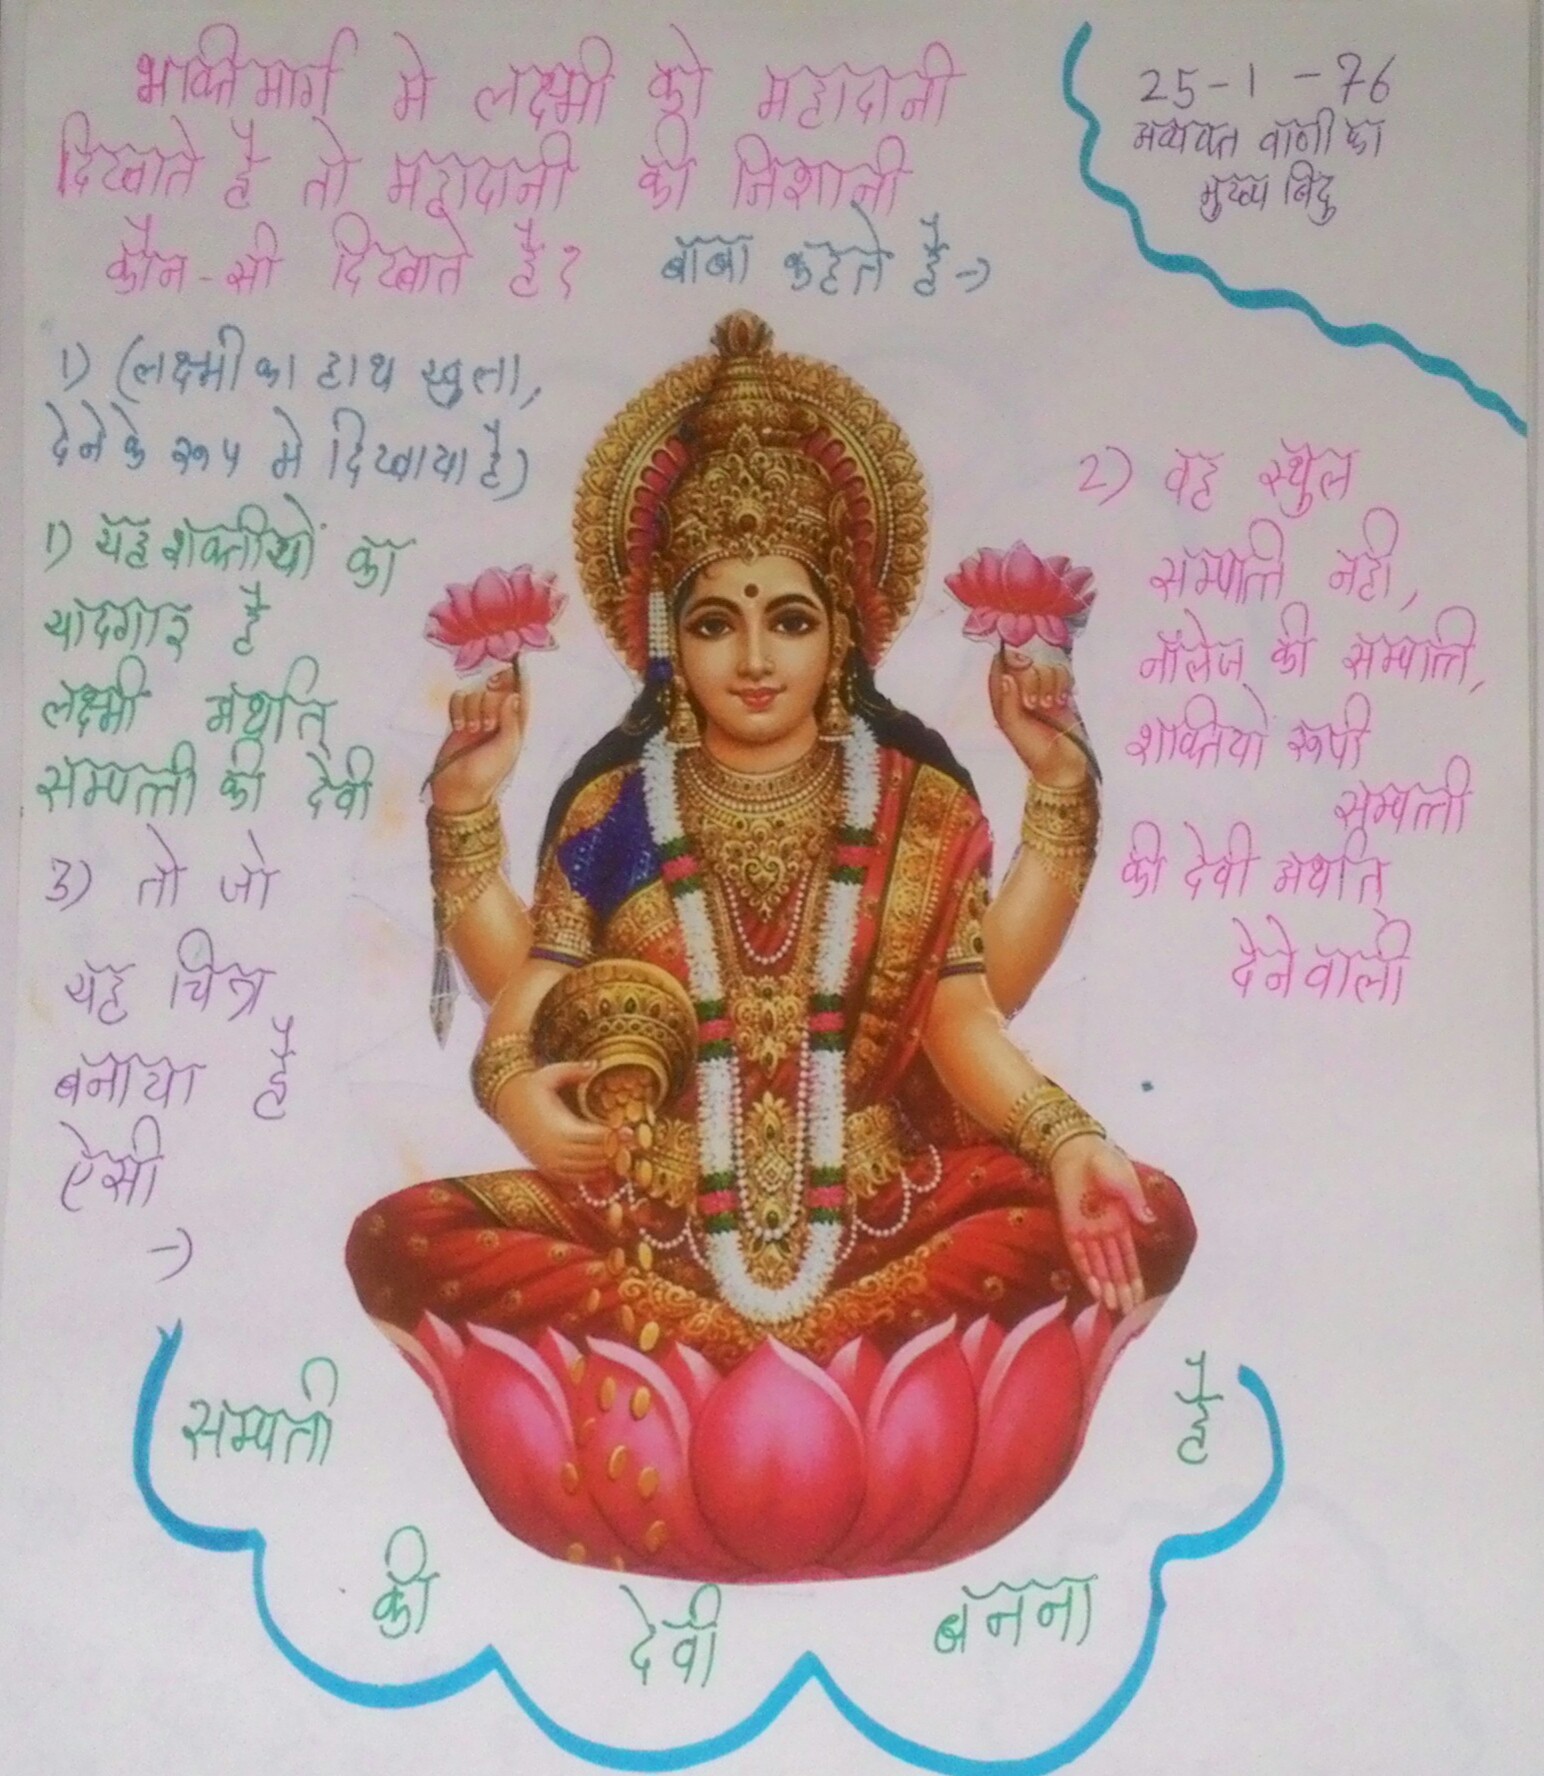 भक्तिमार्ग मे लक्ष्मी को महादानी
दिखाते है तो महादानी की निशानी
कौन-सी दिखाते है? बाबा कहते है→
25-1-76
अव्यक्त वाणी का
मुख्य बिंदु
1) (लक्ष्मी का हाथ खुला,
देने के रूप मे दिखाया है)
1) यह शक्तीयों का
यादगार है
लक्ष्मी अर्थात
सम्पत्ती की देवी
2) वह स्थुल
सम्पत्ति नही,
नॉलेज की सम्पत्ति,
शक्तियों रूपी
सम्पत्ती
की देवी अर्थात
देने वाली
3) तो जो
यह चित्र
बनाया है
ऐसी
→
सम्पत्ती
की
देवी
बनना
है